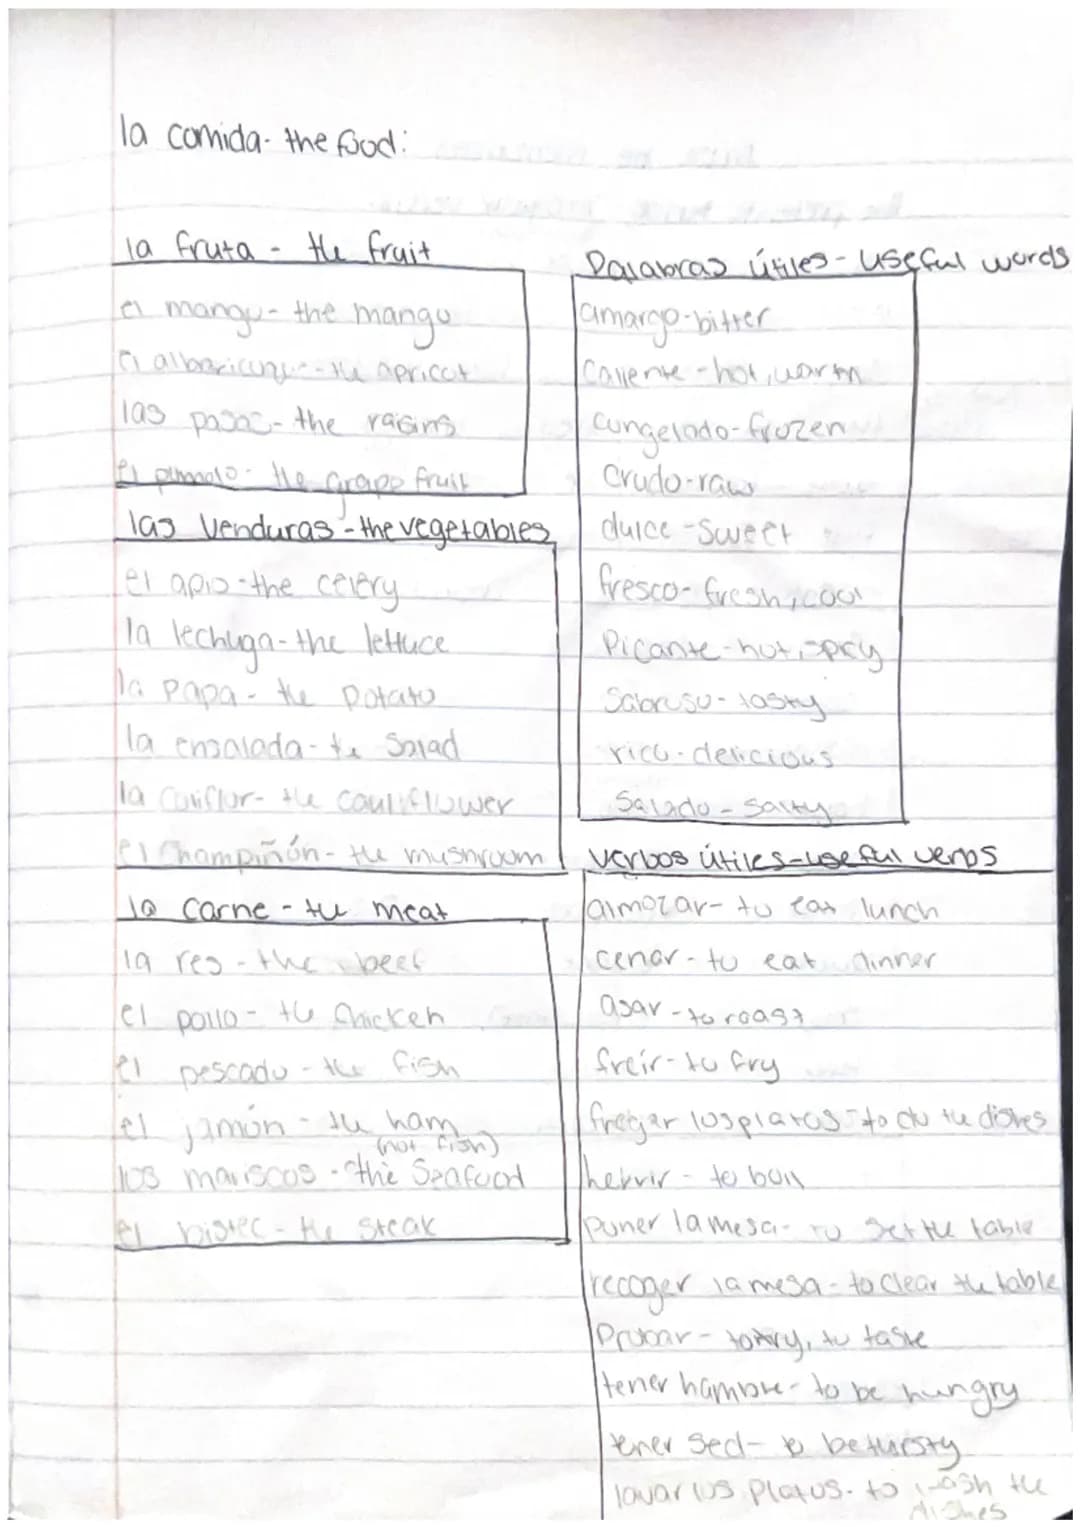 la comida- the food:
la fruta - the fruit
el mango- the mango
el albaricoque- the apricot
las pasas- the raisins
el pomelo- the grape fruit
las Venduras - the vegetables
el apio-the celery
la lechuga-the lettuce
la papa- the potato
la ensalada- the salad
la coliflor- the cauliflower
el Champiñón- the mushroom
la carne - the meat
la res - the beef
el pollo - the chicken
el pescado - the fish
el jamón - the ham
(not fish)
los mariscos - the Seafood
el bistec - the steak
Palabras útiles- useful words
amargo-bitter
caliente - hot, warm
congelado-frozen
Crudo-raw
dulce -Sweet
fresco- fresh, cool
Picante-hot, spicy
Sabroso- tasty
rico-delicious
Salado - Salty
Verbos útiles-useful verbs
almozar- to eat lunch
cenar- to eat dinner
asar -to roast
freír-to fry
fregar los platos -to do the dishes
hervir - to boil
poner la mesa- to set the table
recoger la mesa - to clear the table
Probar - to try, to taste
tener hambre- to be hungry
tener sed- to be thirsty
lavar los platos- to wash the
dishes